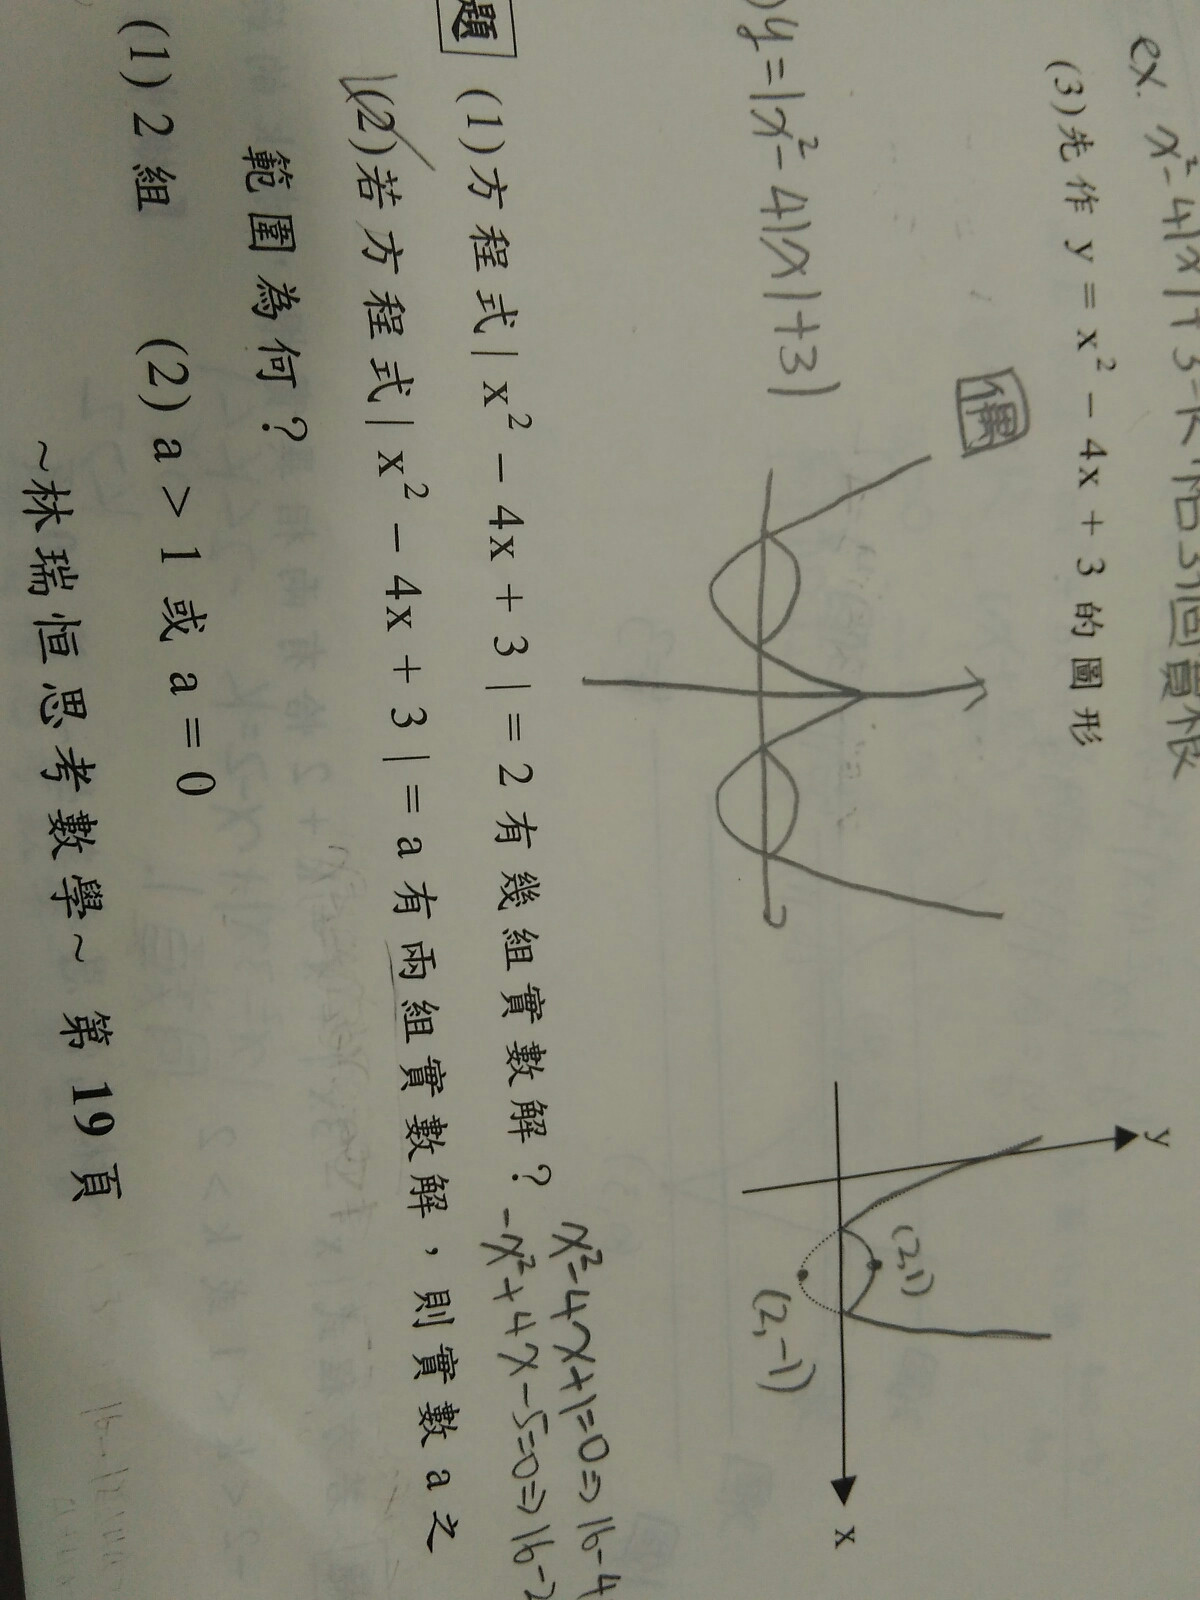 ex. x²-4|x|+3=k 恰3個實根
(3)先作 y = x² - 4x + 3 的圖形
偶
y=|x²-4|x|+3|
y
(2,1)
(2,-1)
x
題 (1)方程式| x² - 4x + 3 | = 2 有幾組實數解?
x²-4x+1=0⇒16-4
-x²+4x-5=0⇒16-2
(2)若方程式| x² - 4x + 3 | = a 有兩組實數解,則實數 a 之
範圍為何?
(1) 2 組 (2) a > 1 或 a = 0
~林瑞恒思考數學~ 第 19 頁